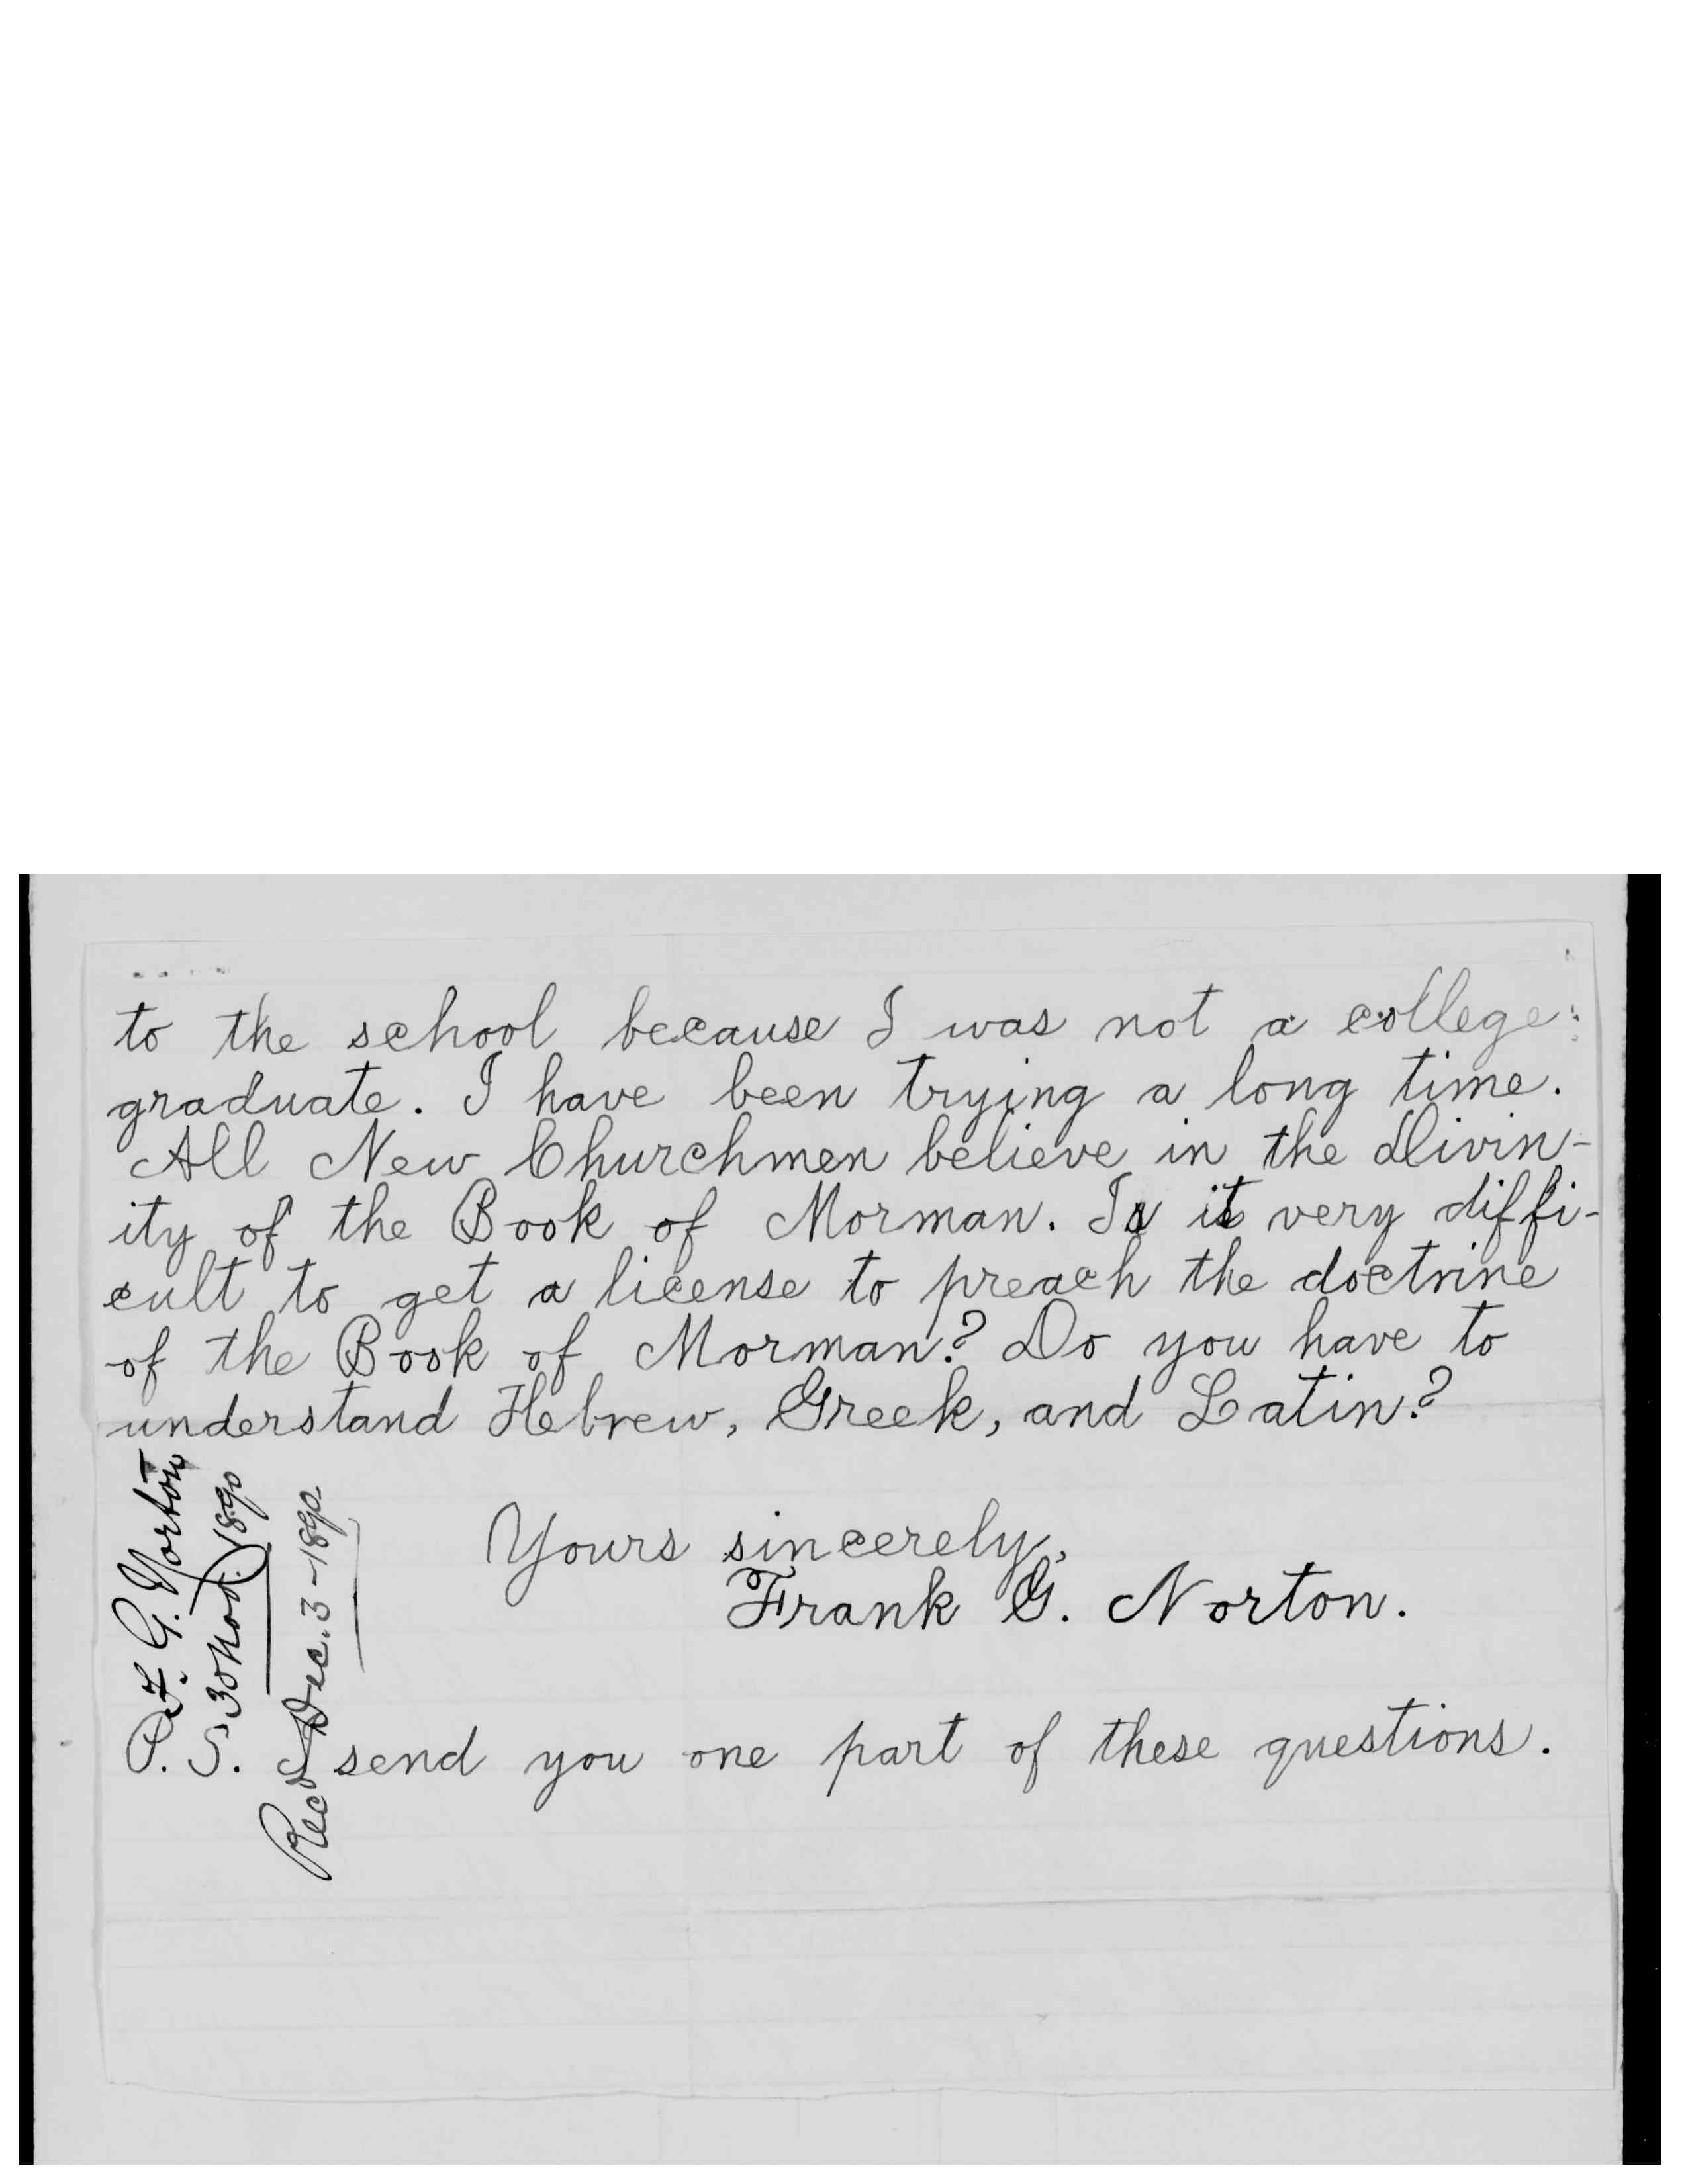 to the school because I was not a college
graduate. I have been trying a long time.
All New Churchmen believe in the Divin-
ity of the Book of Morman. Is it very diffi-
cult to get a license to preach the doctrine
of the Book of Morman? Do you have to
understand Hebrew, Greek, and Latin?
Yours sincerely,
Frank G. Norton.
P. S. I send you one part of these questions.
F. G. Norton
30 Nov. 1890
Recd Dec. 3-1890